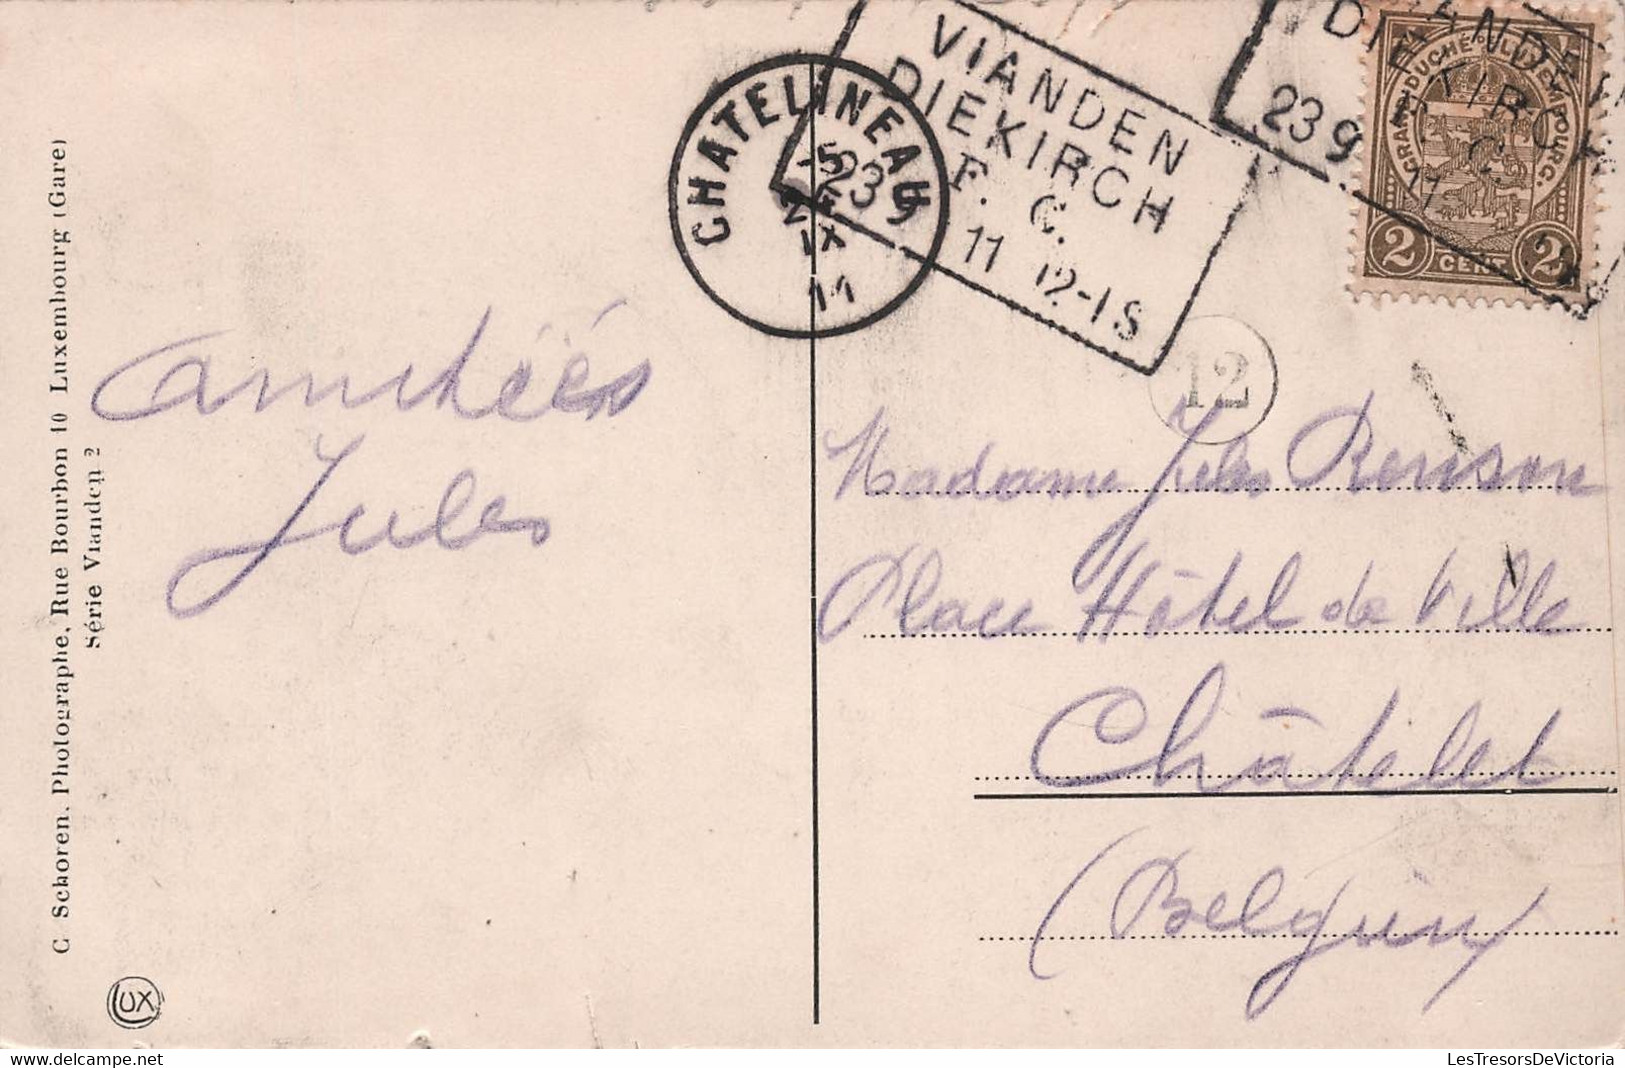 C. Schoren. Photographe, Rue Bourbon 10 Luxembourg (Gare)
Série Vianden 2
LUX
amitiés
Jules
CHATELINEAU
IX
11
VIANDEN
DIEKIRCH
F. C.
23 9 11 12-1 S
VIANDEN
DIEKIRCH
23 9 11
GRAND DUCHÉ DE LUXEMBOURG.
2 CENT 2
12
Madame Jules Renson
Place Hôtel de Ville
Châtelet
(Belgium)
LesTresorsDeVictoria